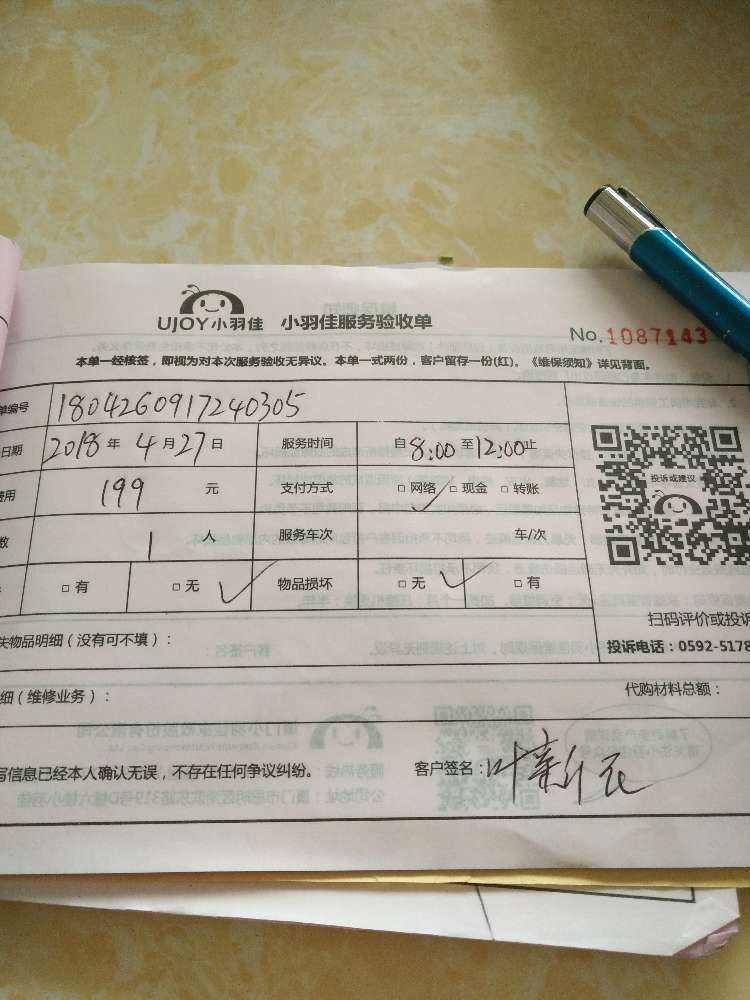 UJOY小羽佳 小羽佳服务验收单
No.1087143
本单一经核签，即视为对本次服务验收无异议。本单一式两份，客户留存一份(红)。《维保须知》详见背面。
单编号 1804260917240305
日期 2018 年 4 月 27 日 服务时间 自 8:00 至 12:00 止
费用 199 元 支付方式 □ 网络 ✓ □ 现金 □ 转账
数 1 人 服务车次 车/次
□ 有 □ 无 ✓ 物品损坏 □ 无 ✓ □ 有
投诉或建议
扫码评价或投诉
投诉电话：0592-5178
失物品明细（没有可不填）：
细（维修业务）： 代购材料总额：
写信息已经本人确认无误，不存在任何争议纠纷。 客户签名：叶新